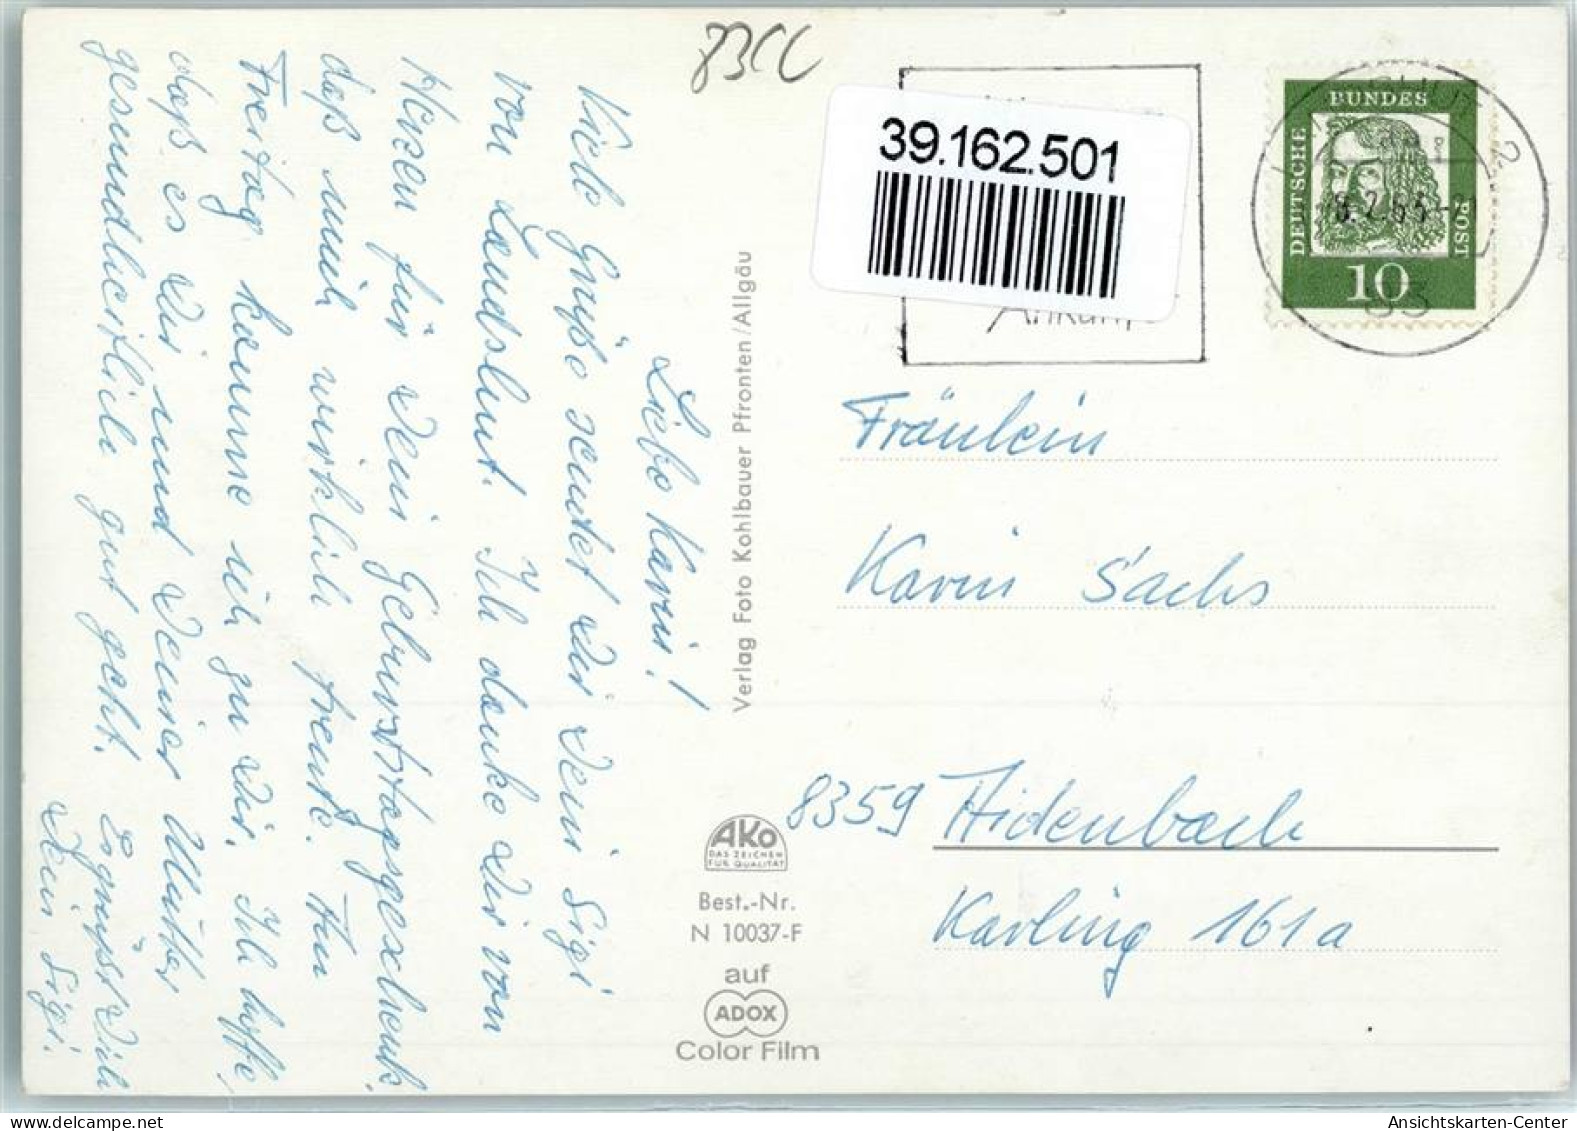 8300
39.162.501
Ankunft
DEUTSCHE
BUNDES
POST
10
2
8.2.65-21
83
Liebe Karin!
Viele Grüße sendet Dir Dein Sigi
von Landshut. Ich danke Dir von
Herzen für Dein Geburtstagsgeschenk,
daß mich wirklich freute. Am
Freitag komme ich zu Dir. Ich hoffe,
daß es Dir und Deiner Mutter
gesundheitlich gut geht. Es grüßt Dich
Dein Sigi.
Verlag Foto Kohlbauer Pfronten/Allgäu
Fräulein
Karin Sachs
8359 Aidenbach
Karling 161a
AKO
DAS ZEICHEN
FÜR QUALITÄT
Best.-Nr.
N 10037-F
auf
ADOX
Color Film
Ansichtskarten-Center